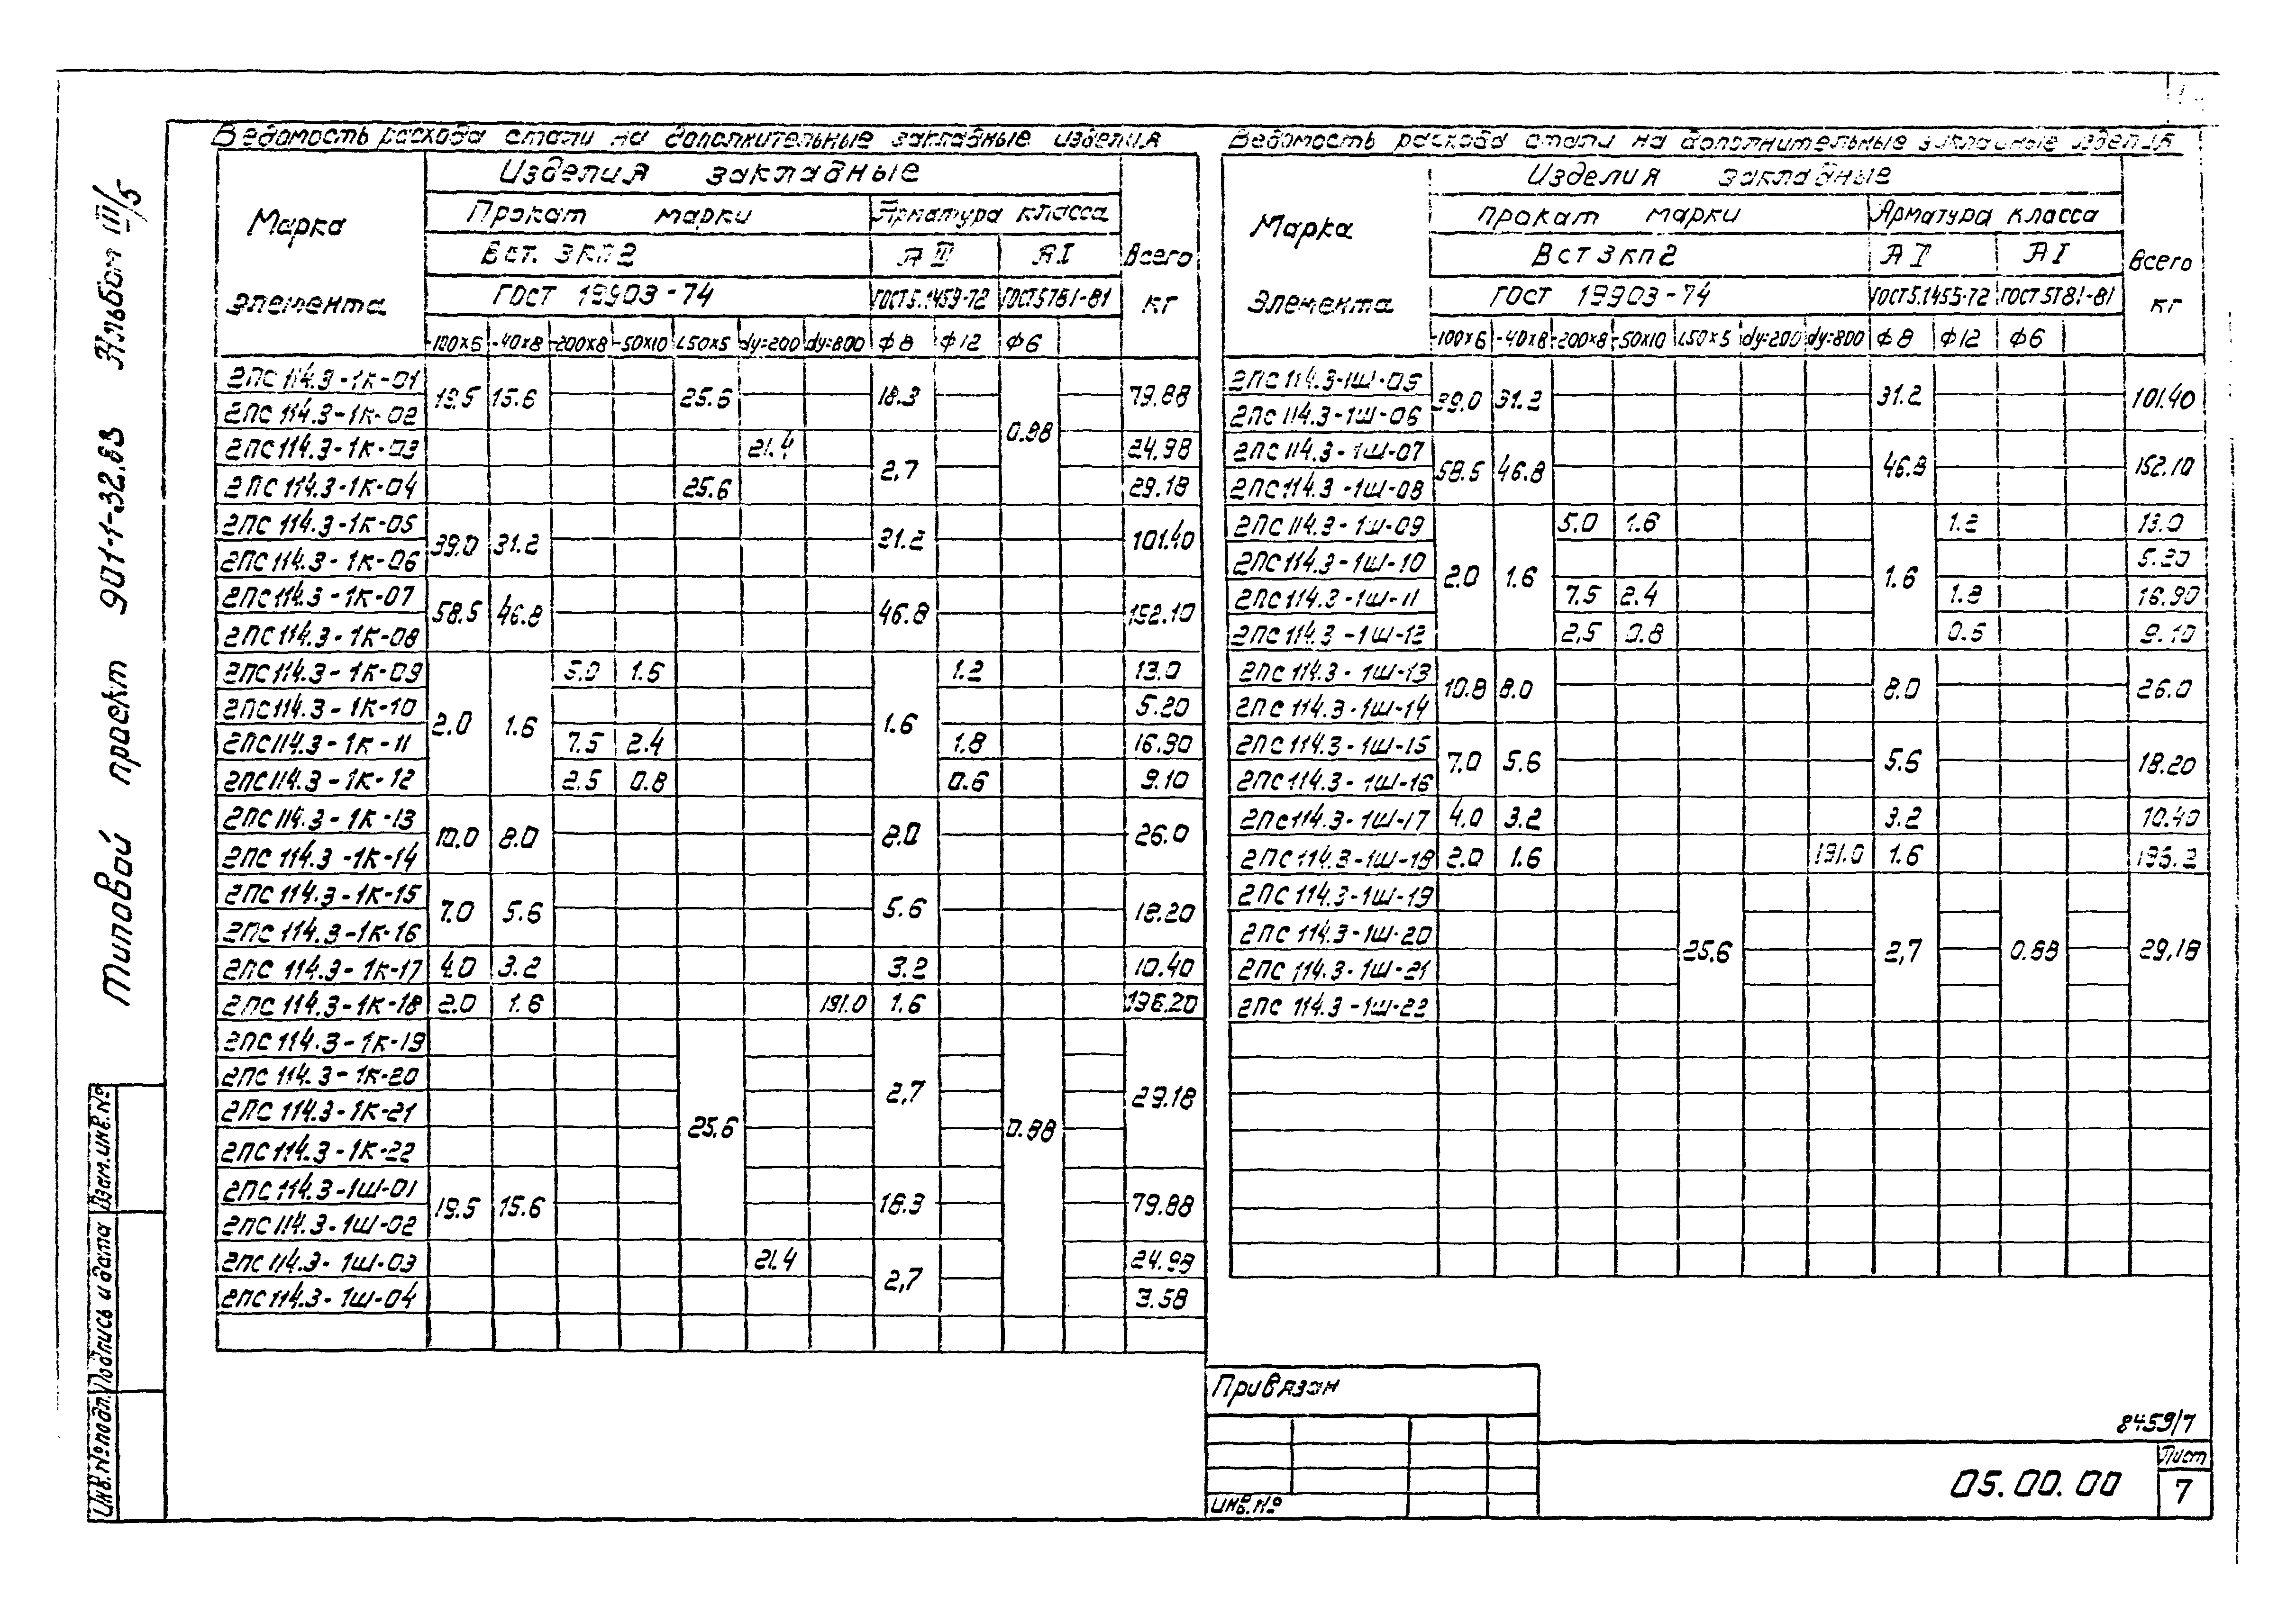 Типовой проект 901-1-32.83 Альбом III/5
Ведомость расхода стали на дополнительные закладные изделия
Марка элемента
Изделия закладные
Прокат марки
Арматура класса
Вст. 3кп2
А III
А I
Всего кг
ГОСТ 19903-74
ГОСТ5.1459-72
ГОСТ5781-81
-100×6 -40×8 -200×8 -50×10 L50×5 dy=200 dy=800 ф8 ф12 ф6
2ПС114.3-1К-01 19.5 15.6 25.6 18.3 0.88 79.88
2ПС114.3-1К-02
2ПС114.3-1К-03 21.4 2,7 24.98
2ПС114.3-1К-04 25.6 29.18
2ПС114.3-1К-05 39.0 31.2 31.2 101.40
2ПС114.3-1К-06
2ПС114.3-1К-07 58.5 46.8 46.8 152.10
2ПС114.3-1К-08
2ПС114.3-1К-09 2.0 1.6 5.0 1.6 1.6 1.2 13.0
2ПС114.3-1К-10 5.20
2ПС114.3-1К-11 7.5 2.4 1.8 16.90
2ПС114.3-1К-12 2,5 0.8 0.6 9.10
2ПС114.3-1К-13 10.0 8.0 8.0 26.0
2ПС114.3-1К-14
2ПС114.3-1К-15 7.0 5.6 5.6 18.20
2ПС114.3-1К-16
2ПС114.3-1К-17 4.0 3.2 3.2 10.40
2ПС114.3-1К-18 2.0 1.6 191.0 1.6 196.20
2ПС114.3-1К-19 25.6 2,7 0.88 29.18
2ПС114.3-1К-20
2ПС114.3-1К-21
2ПС114.3-1К-22
2ПС114.3-1Ш-01 19.5 15.6 18.3 79.88
2ПС114.3-1Ш-02
2ПС114.3-1Ш-03 21.4 2,7 24.98
2ПС114.3-1Ш-04 3.58
Ведомость расхода стали на дополнительные закладные изделия
Марка элемента
Изделия закладные
прокат марки
Арматура класса
Вст3кп2
А I
А I
Всего кг
ГОСТ 19903-74
ГОСТ5.1455-72
ГОСТ5781-81
-100×6 -40×8 -200×8 -50×10 L50×5 dy=200 dy=800 ф8 ф12 ф6
2ПС114.3-1Ш-05 39.0 31.2 31.2 101.40
2ПС114.3-1Ш-06
2ПС114.3-1Ш-07 58.5 46.8 46.8 152.10
2ПС114.3-1Ш-08
2ПС114.3-1Ш-09 2.0 1.6 5.0 1.6 1.6 1.2 13.0
2ПС114.3-1Ш-10 5.20
2ПС114.3-1Ш-11 7.5 2.4 1.8 16.90
2ПС114.3-1Ш-12 2,5 0.8 0.6 9.10
2ПС114.3-1Ш-13 10.8 8.0 8.0 26.0
2ПС114.3-1Ш-14
2ПС114.3-1Ш-15 7.0 5.6 5.6 18.20
2ПС114.3-1Ш-16
2ПС114.3-1Ш-17 4.0 3.2 3.2 10.40
2ПС114.3-1Ш-18 2.0 1.6 191.0 1.6 196.2
2ПС114.3-1Ш-19 25.6 2,7 0.88 29,18
2ПС114.3-1Ш-20
2ПС114.3-1Ш-21
2ПС114.3-1Ш-22
Инв.№подл. Подпись и дата Взам.инв.№
Привязан
инв.№
8459/7
05.00.00
Лист
7